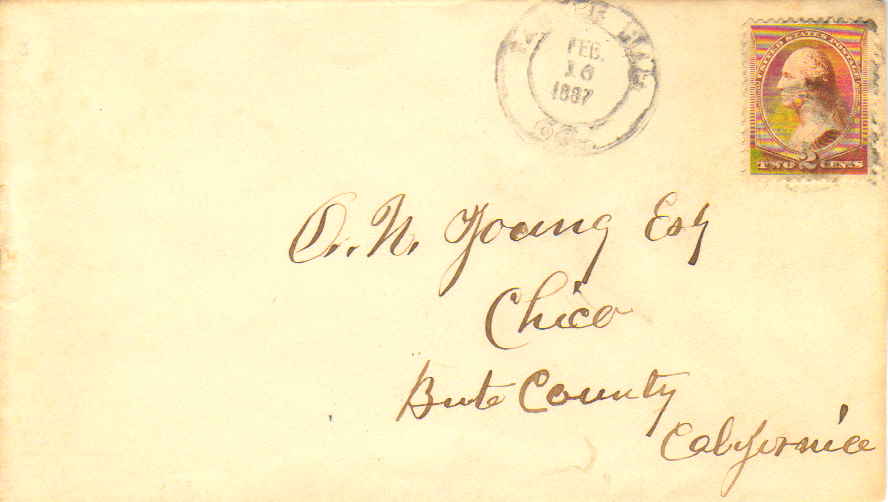 FEB.
16
1887
UNITED STATES POSTAGE
TWO 2 CENTS
O. N. Young Esq
Chico
Bute County
California